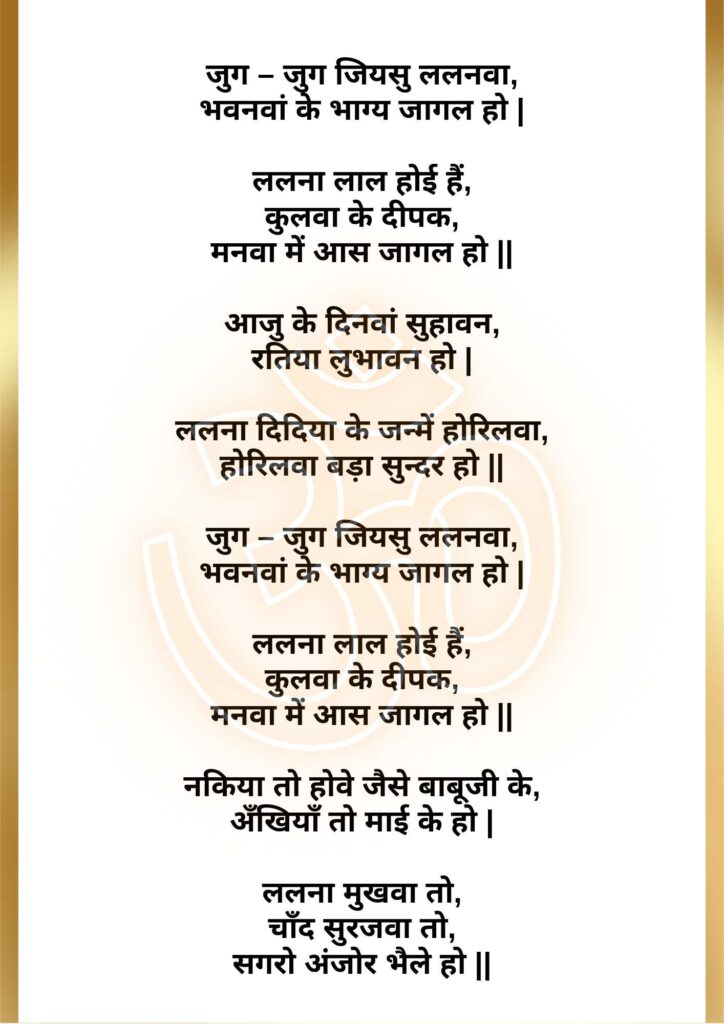 जुग – जुग जियसु ललनवा,
भवनवां के भाग्य जागल हो |
ललना लाल होई हैं,
कुलवा के दीपक,
मनवा में आस जागल हो ||
आजु के दिनवां सुहावन,
रतिया लुभावन हो |
ललना दिदिया के जन्में होरिलवा,
होरिलवा बड़ा सुन्दर हो ||
जुग – जुग जियसु ललनवा,
भवनवां के भाग्य जागल हो |
ललना लाल होई हैं,
कुलवा के दीपक,
मनवा में आस जागल हो ||
नकिया तो होवे जैसे बाबूजी के,
अँखियाँ तो माई के हो |
ललना मुखवा तो,
चाँद सुरजवा तो,
सगरो अंजोर भैले हो ||